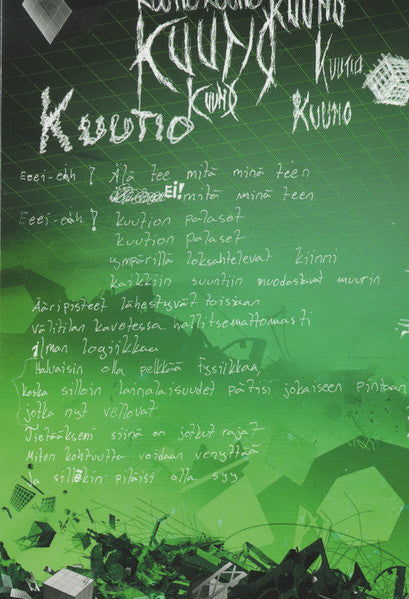 Kuutio
Kuutio
Kuutio
Kuutio
Kuutio
Kuutio
Eeei-eäh! Älä tee mitä minä teen
Ei! mitä minä teen
Eeei-eäh! kuution palaset
kuution palaset
ympärillä loksahtelevat kiinni
kaikkiin suuntiin muodostavat muurin
Ääripisteet lähestyvät toisiaan
välitilan kavetessa hallitsemattomasti
ilman logiikkaa
Haluaisin olla pelkkää fysiikkaa,
koska silloin lainalaisuudet pätisi jokaiseen pintaan
jotka nyt vellovat
Tietääkseni siinä on jotkut rajat
Miten kohtuutta voidaan venyttää
Ja silläkin pitäisi olla syy